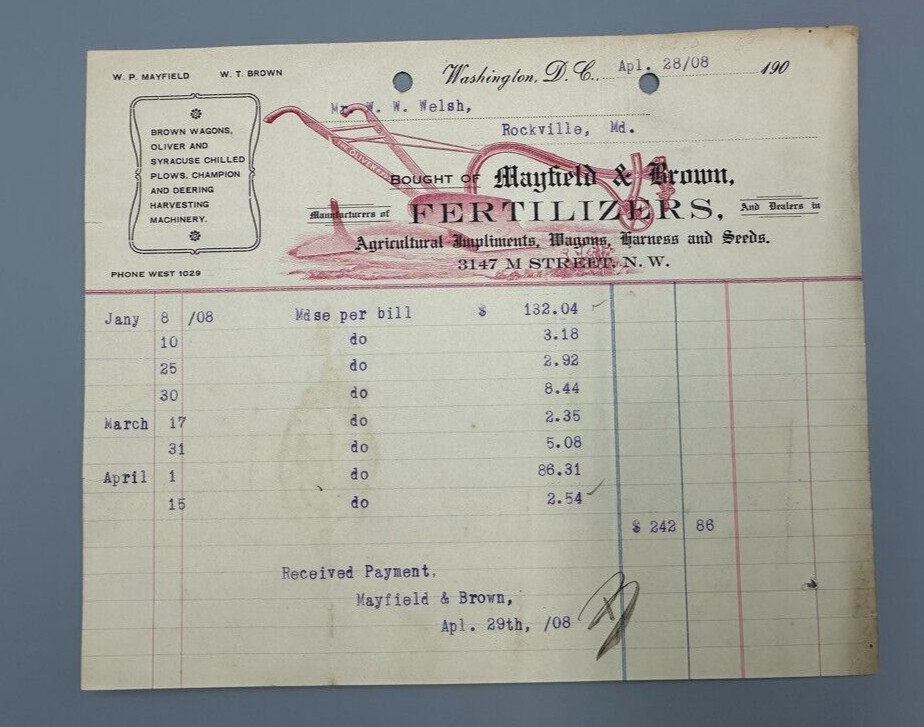 W. P. MAYFIELD W. T. BROWN
Washington, D. C., Apl. 28/08 190
Mr. W. W. Welsh,
Rockville, Md.
BROWN WAGONS,
OLIVER AND
SYRACUSE CHILLED
PLOWS, CHAMPION
AND DEERING
HARVESTING
MACHINERY.
BOUGHT OF Mayfield & Brown,
Manufacturers of FERTILIZERS, And Dealers in
Agricultural Impliments, Wagons, Harness and Seeds.
3147 M STREET, N. W.
PHONE WEST 1029
Jany 8 /08 Mdse per bill $ 132.04
10 do 3.18
25 do 2.92
30 do 8.44
March 17 do 2.35
31 do 5.08
April 1 do 86.31
15 do 2.54
$ 242 86
Received Payment,
Mayfield & Brown,
Apl. 29th, /08